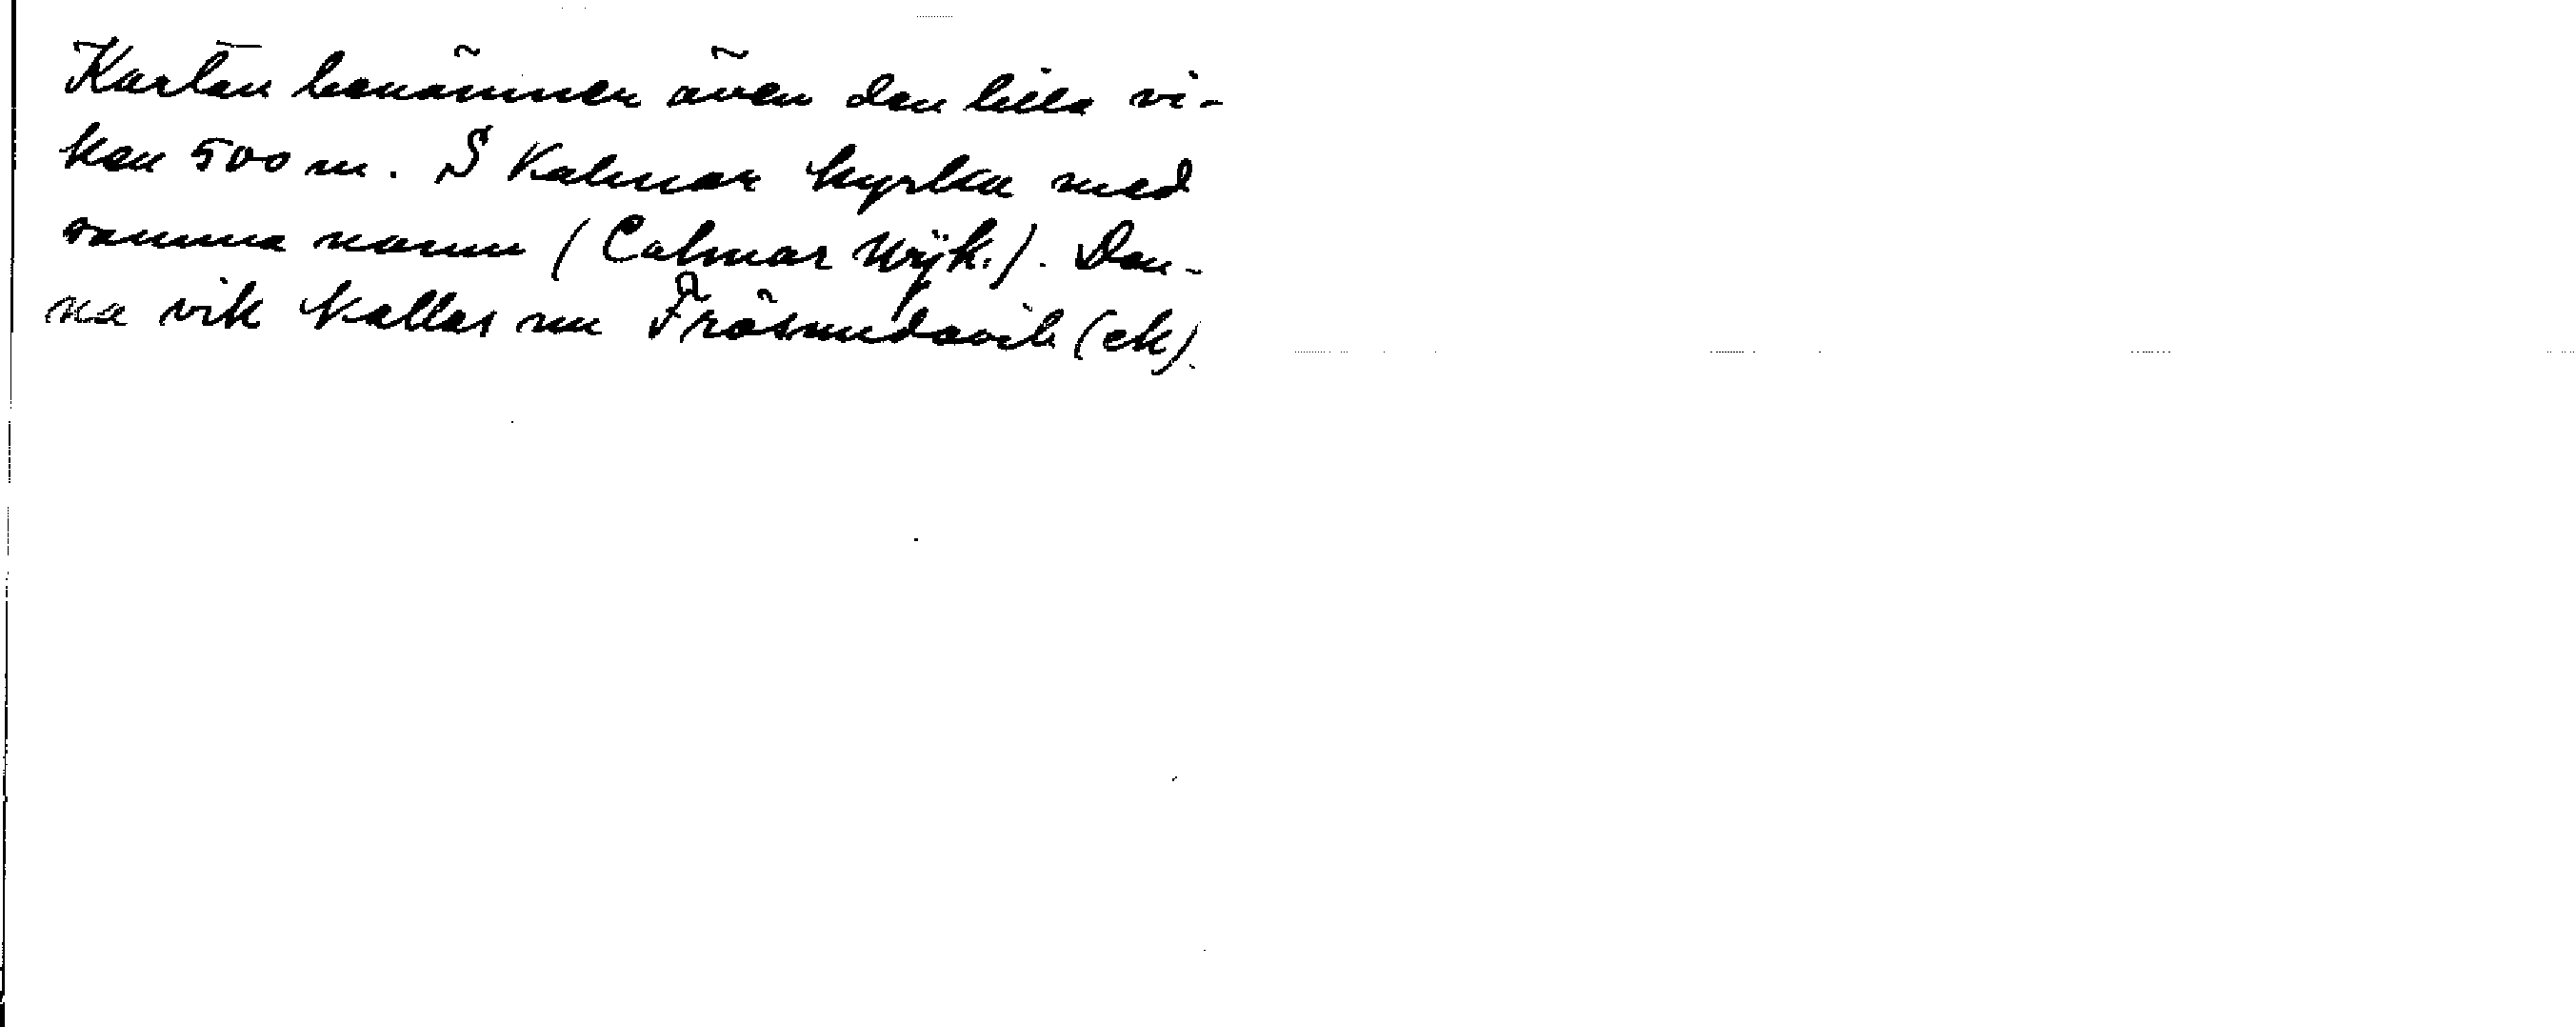 Kartan benämner även den lilla vi-
ken 500 m. S Kalmar kyrka med
samma namn (Calmar Wijk.). Den-
na vik kallas nu Frösundavik (ek).